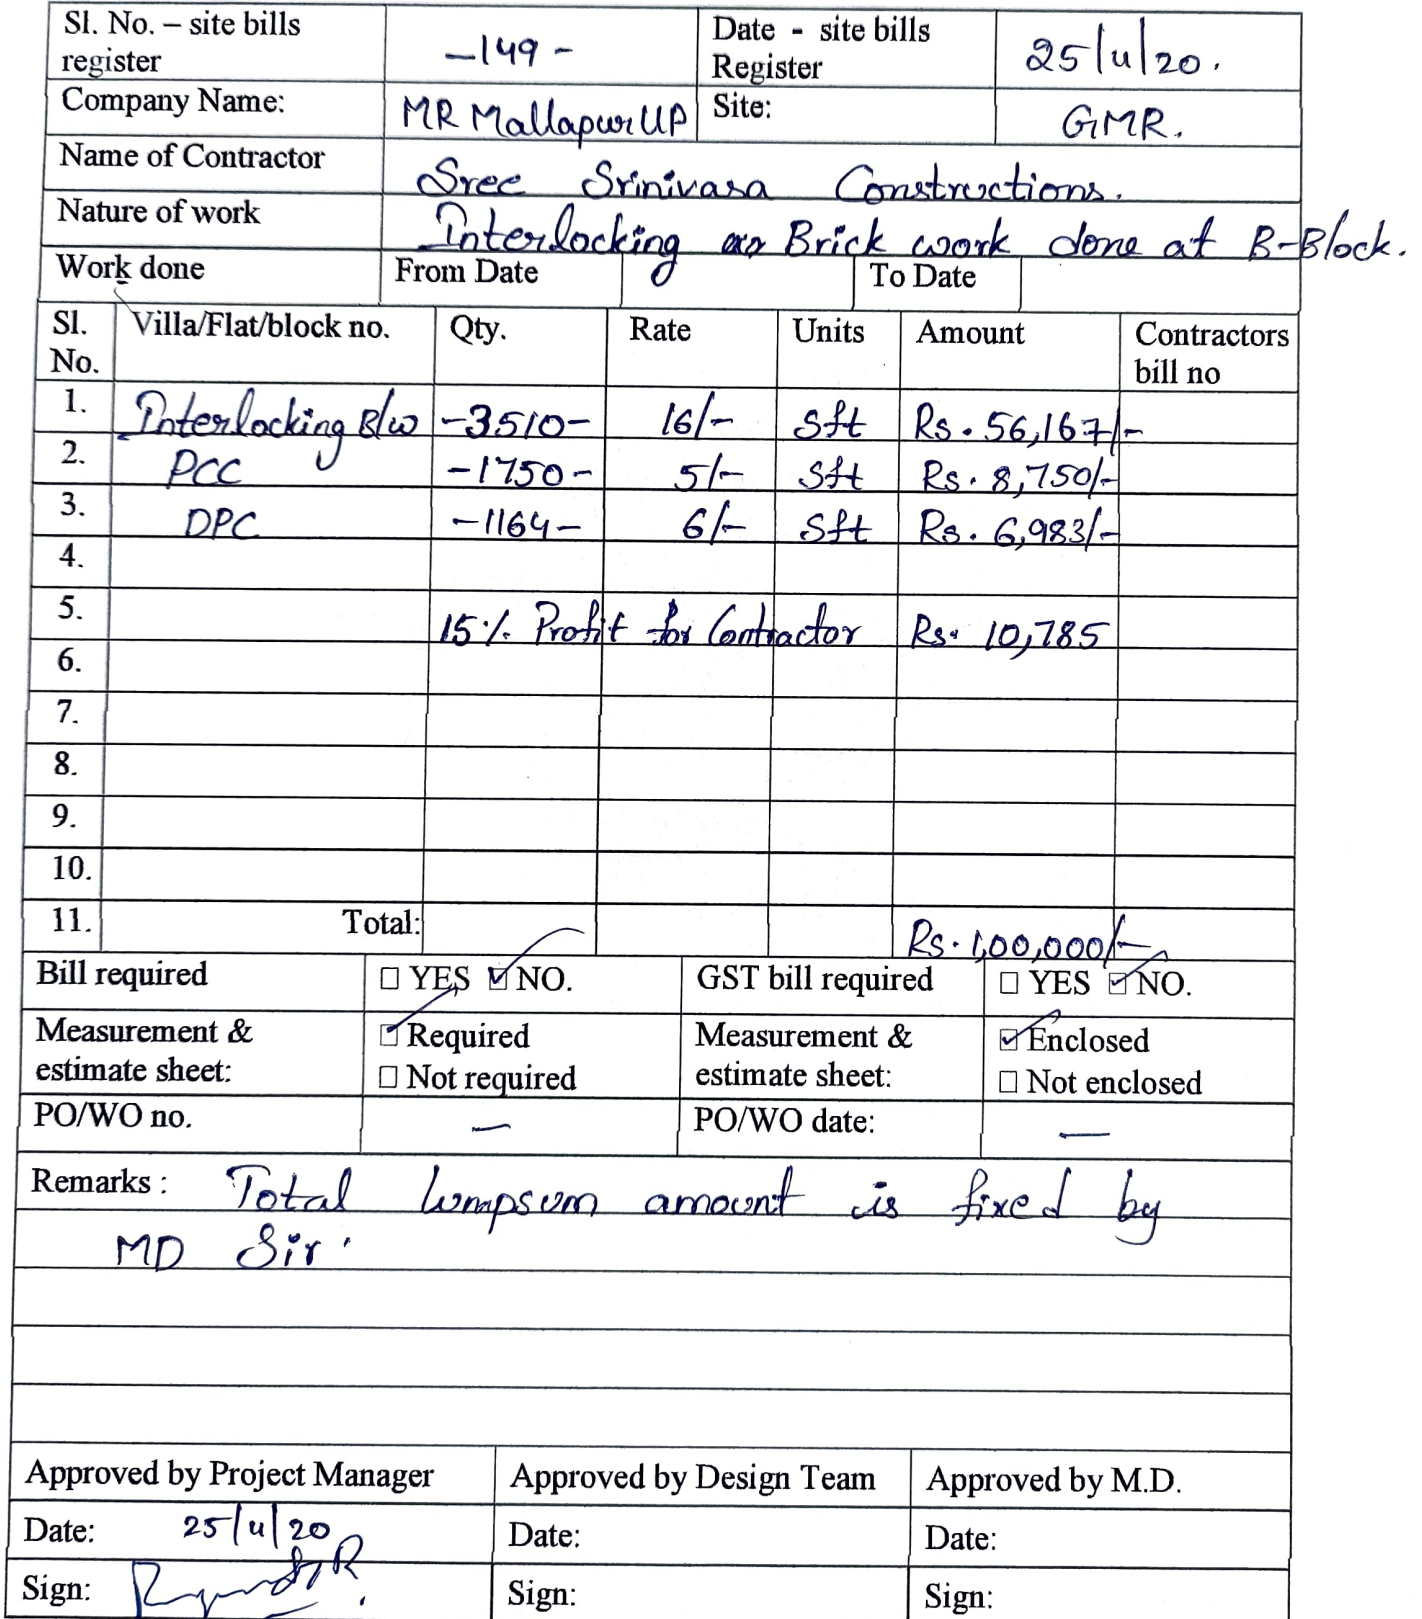 Sl. No. – site bills register -149- Date - site bills Register 25/4/20.
Company Name: MR Mallapur UP Site: GMR.
Name of Contractor Sree Srinivasa Constructions.
Nature of work Interlocking Brick work done at B-Block.
Work done From Date To Date
Sl. No. Villa/Flat/block no. Qty. Rate Units Amount Contractors bill no
1. Interlocking B/w -3510- 16/- sft Rs. 56,167/-
2. PCC -1750- 5/- sft Rs. 8,750/-
3. DPC -1164- 6/- sft Rs. 6,983/-
4.
5. 15% Profit for Contractor Rs. 10,785
6.
7.
8.
9.
10.
11. Total: Rs. 1,00,000/-
Bill required ☐ YES ☑ NO. GST bill required ☐ YES ☑ NO.
Measurement & estimate sheet: ☑ Required ☐ Not required Measurement & estimate sheet: ☑ Enclosed ☐ Not enclosed
PO/WO no. — PO/WO date: —
Remarks : Total lumpsum amount is fixed by
MD Sir.
Approved by Project Manager Approved by Design Team Approved by M.D.
Date: 25/4/20 Date: Date:
Sign: Sign: Sign: